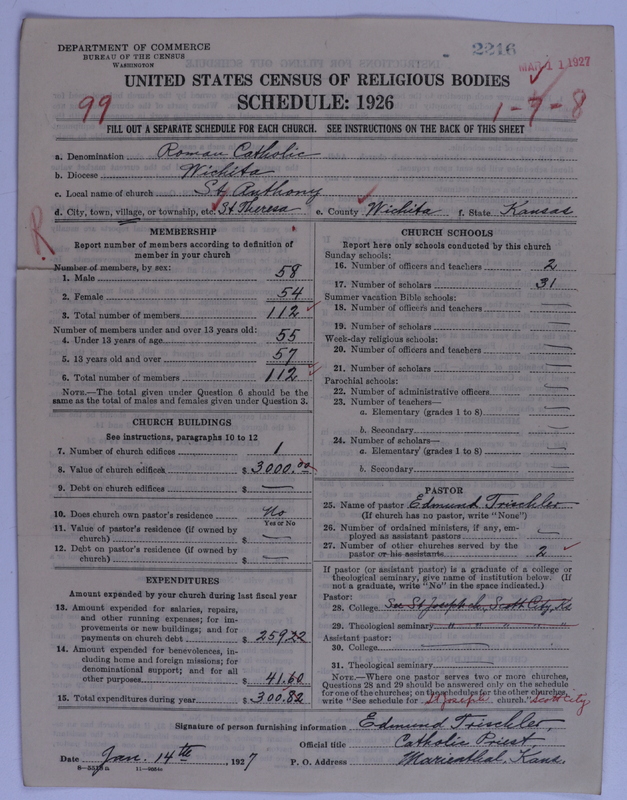 DEPARTMENT OF COMMERCE
BUREAU OF THE CENSUS
WASHINGTON
2216
MAR 11 1927
UNITED STATES CENSUS OF RELIGIOUS BODIES
99
SCHEDULE: 1926
1-7-8
FILL OUT A SEPARATE SCHEDULE FOR EACH CHURCH. SEE INSTRUCTIONS ON THE BACK OF THIS SHEET
a. Denomination Roman Catholic
b. Diocese Wichita
c. Local name of church St. Anthony
d. City, town, village, or township, etc. St Theresa e. County Wichita f. State Kansas
R
MEMBERSHIP
Report number of members according to definition of
member in your church
Number of members, by sex:
1. Male 58
2. Female 54
3. Total number of members 112
Number of members under and over 13 years old:
4. Under 13 years of age 55
5. 13 years old and over 57
6. Total number of members 112
NOTE.—The total given under Question 6 should be
same as the total of males and females given under Question 3.
CHURCH BUILDINGS
See instructions, paragraphs 10 to 12
7. Number of church edifices 1
8. Value of church edifices $ 3000.00
9. Debt on church edifices $ —
10. Does church own pastor's residence No
Yes or No
11. Value of pastor's residence (if owned by
church) $ —
12. Debt on pastor's residence (if owned by
church) $ —
EXPENDITURES
Amount expended by your church during last fiscal year
13. Amount expended for salaries, repairs,
and other running expenses; for im-
provements or new buildings; and for
payments on church debt $ 259.22
14. Amount expended for benevolences, in-
cluding home and foreign missions; for
denominational support; and for all
other purposes $ 41.60
15. Total expenditures during year $ 300.82
CHURCH SCHOOLS
Report here only schools conducted by this church
Sunday schools:
16. Number of officers and teachers 2
17. Number of scholars 31
Summer vacation Bible schools:
18. Number of officers and teachers —
19. Number of scholars —
Week-day religious schools:
20. Number of officers and teachers —
21. Number of scholars —
Parochial schools:
22. Number of administrative officers —
23. Number of teachers—
a. Elementary (grades 1 to 8) —
b. Secondary —
24. Number of scholars—
a. Elementary (grades 1 to 8) —
b. Secondary —
PASTOR
25. Name of pastor Edmund Trischler
(If church has no pastor, write "None")
26. Number of ordained ministers, if any, em-
ployed as assistant pastors —
27. Number of other churches served by the
pastor or his assistants 2
If pastor (or assistant pastor) is a graduate of a college or
theological seminary, give name of institution below. (If
not a graduate, write "No" in the space indicated.)
Pastor:
28. College See St Joseph ch., Scott City, Ks
29. Theological seminary " " " " "
Assistant pastor:
30. College —
31. Theological seminary —
NOTE.—Where one pastor serves two or more churches,
Questions 28 and 29 should be answered only on the schedule
for one of the churches; on the schedules for the other churches,
write "See schedule for St Joseph church." Scott City
Signature of person furnishing information Edmund Trischler,
Official title Catholic Priest
Date Jan. 14th, 1927 P. O. Address Marienthal, Kans.